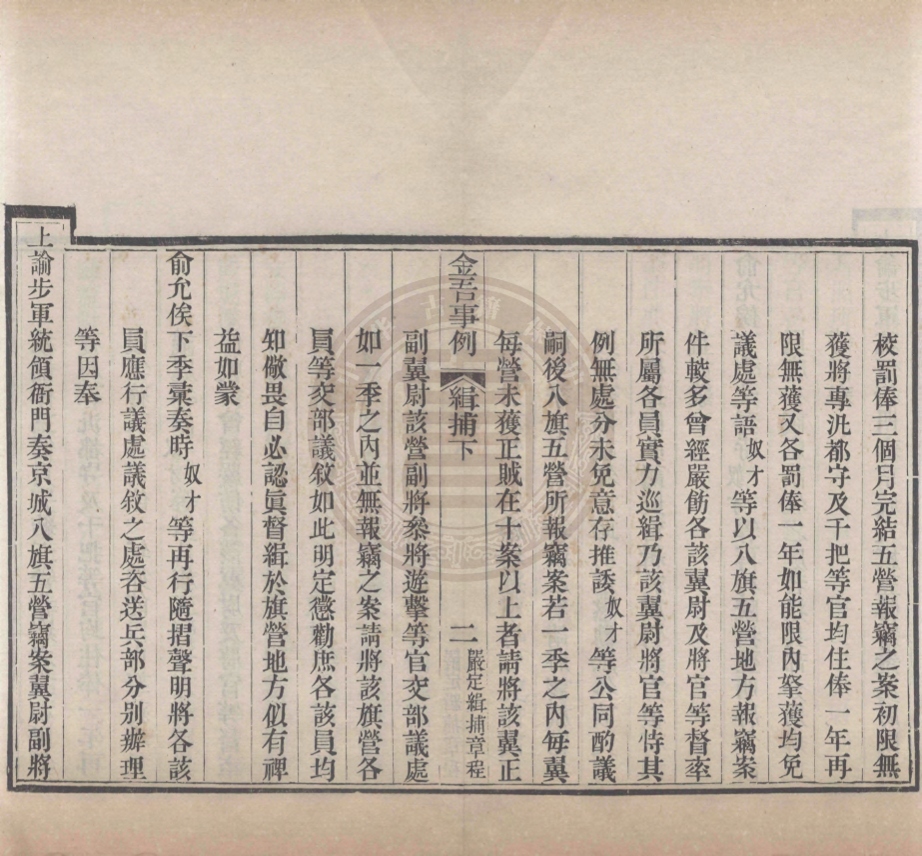 校罰俸三個月完結五營報竊之案初限無
獲將專汛都守及千把等官均住俸一年再
限無獲又各罰俸一年如能限內拏獲均免
議處等語奴才等以八旗五營地方報竊案
件較多曾經嚴飭各該翼尉及將官等督率
所屬各員實力巡緝乃該翼尉將官等恃其
例無處分未免意存推諉奴才等公同酌議
嗣後八旗五營所報竊案若一季之內每翼
每營未獲正賊在十案以上者請將該翼正
金吾事例 緝捕下 二 嚴定緝捕章程
副翼尉該營副將叅將遊擊等官交部議處
如一季之內並無報竊之案請將該旗營各
員等交部議敘如此明定懲勸庶各該員均
知儆畏自必認眞督緝於旗營地方似有裨
益如蒙
俞允俟下季彙奏時奴才等再行隨摺聲明將各該
員應行議處議敘之處咨送兵部分別辦理
等因奉
上諭步軍統領衙門奏京城八旗五營竊案翼尉副將